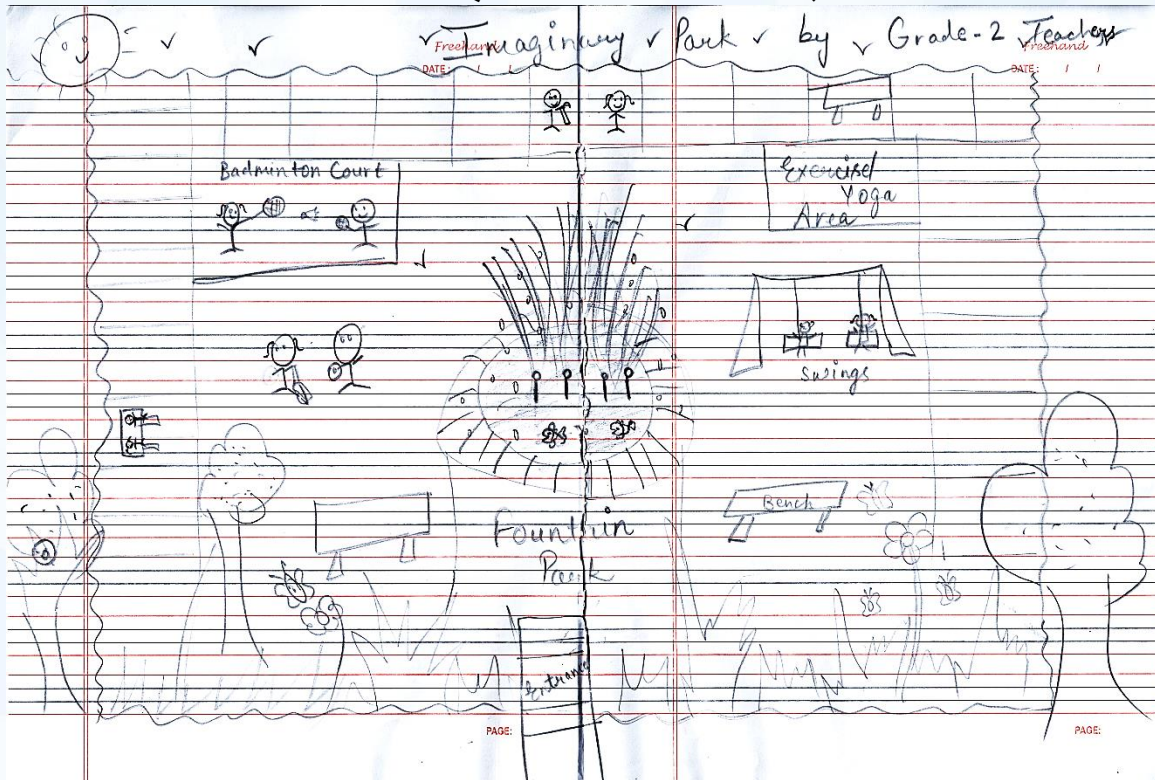 Imaginary Park by Grade-2 Teachers
Freehand
Freehand
DATE: / /
DATE: / /
Badminton Court
Exercise/
Yoga
Area
Swings
Bench
Fountain
Park
Entrance
PAGE:
PAGE: